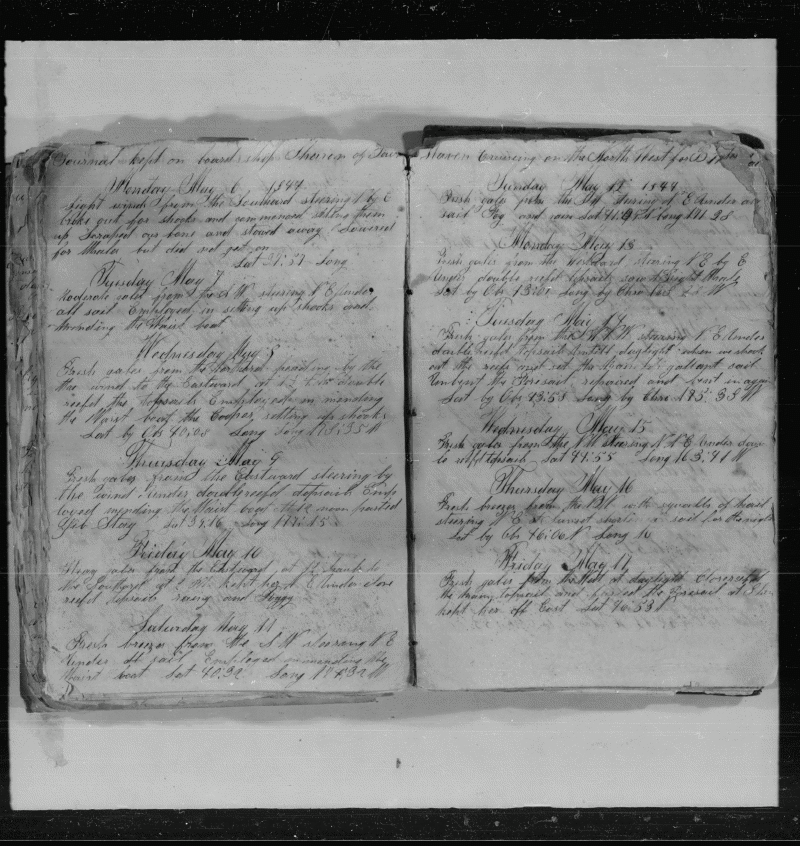 Journal kept on board ship Sharon of Fair
Monday May 6 1844
Light winds from the Southard steering N by E
broke out for shooks and commenced setting them
up Scraped our bone and stowed away Lowered
for Whale but did not get on
Lat 39:59 Long
Tuesday May 7
Moderate gales from the S W steering N E under
all sail Employed in setting up shooks and
mending the Waist boat
Wednesday May 8
Fresh gales from the heading by the
the wind to the Eastward at double
reefed the topsails Employed in mending
the Waist boat the Cooper setting up shooks
Lat by Obs 40:08 Long 178:35 W
Thursday May 9
Fresh gales from the Eastward steering by
the Wind Under doublereefed topsails Emp
loyed mending the Waist boat at noon parted
Gib Stay Lat 39:16 Long
Friday May 10
Strong gales from the Eastward at
the Southard at kept her N E Under close
reefed topsails rainy and foggy
Saturday May 11
Fresh breezes from the S W steering N E
Under all sail Employed in mending the
Waist boat Lat 40:32 Long W
Haven Cruising on the North West for
Sunday May 12 1844
Fresh gales from the steering N E Under
sail Fog and rain Lat Long
Monday May 13
Fresh gales from the Westward steering N E by E
Under double reefed topsails saw a Right Whale
Lat by Obs 43:01 Long by Chro W
Tuesday May 14
Fresh gales from the steering N E Under
double reefed topsails Untill daylight when we shook
out the reefs and set the main to gallant sail
Unbent the Foresail repaired and bent in again
Lat by Obs 43:58 Long by Chro W
Wednesday May 15
Fresh gales from the N W steering N E Under doub
le reefd topsails Lat 44:55 Long 163:41 W
Thursday May 16
Fresh breezes from the N W with squalls of hail
steering N E at sunset shortened sail for the night
Lat by Obs 46:00 N Long
Friday May 17
Fresh gales from the West at daylight Closereefed
the main topsail and furled the Foresail at
kept her off East Lat 46:53 N